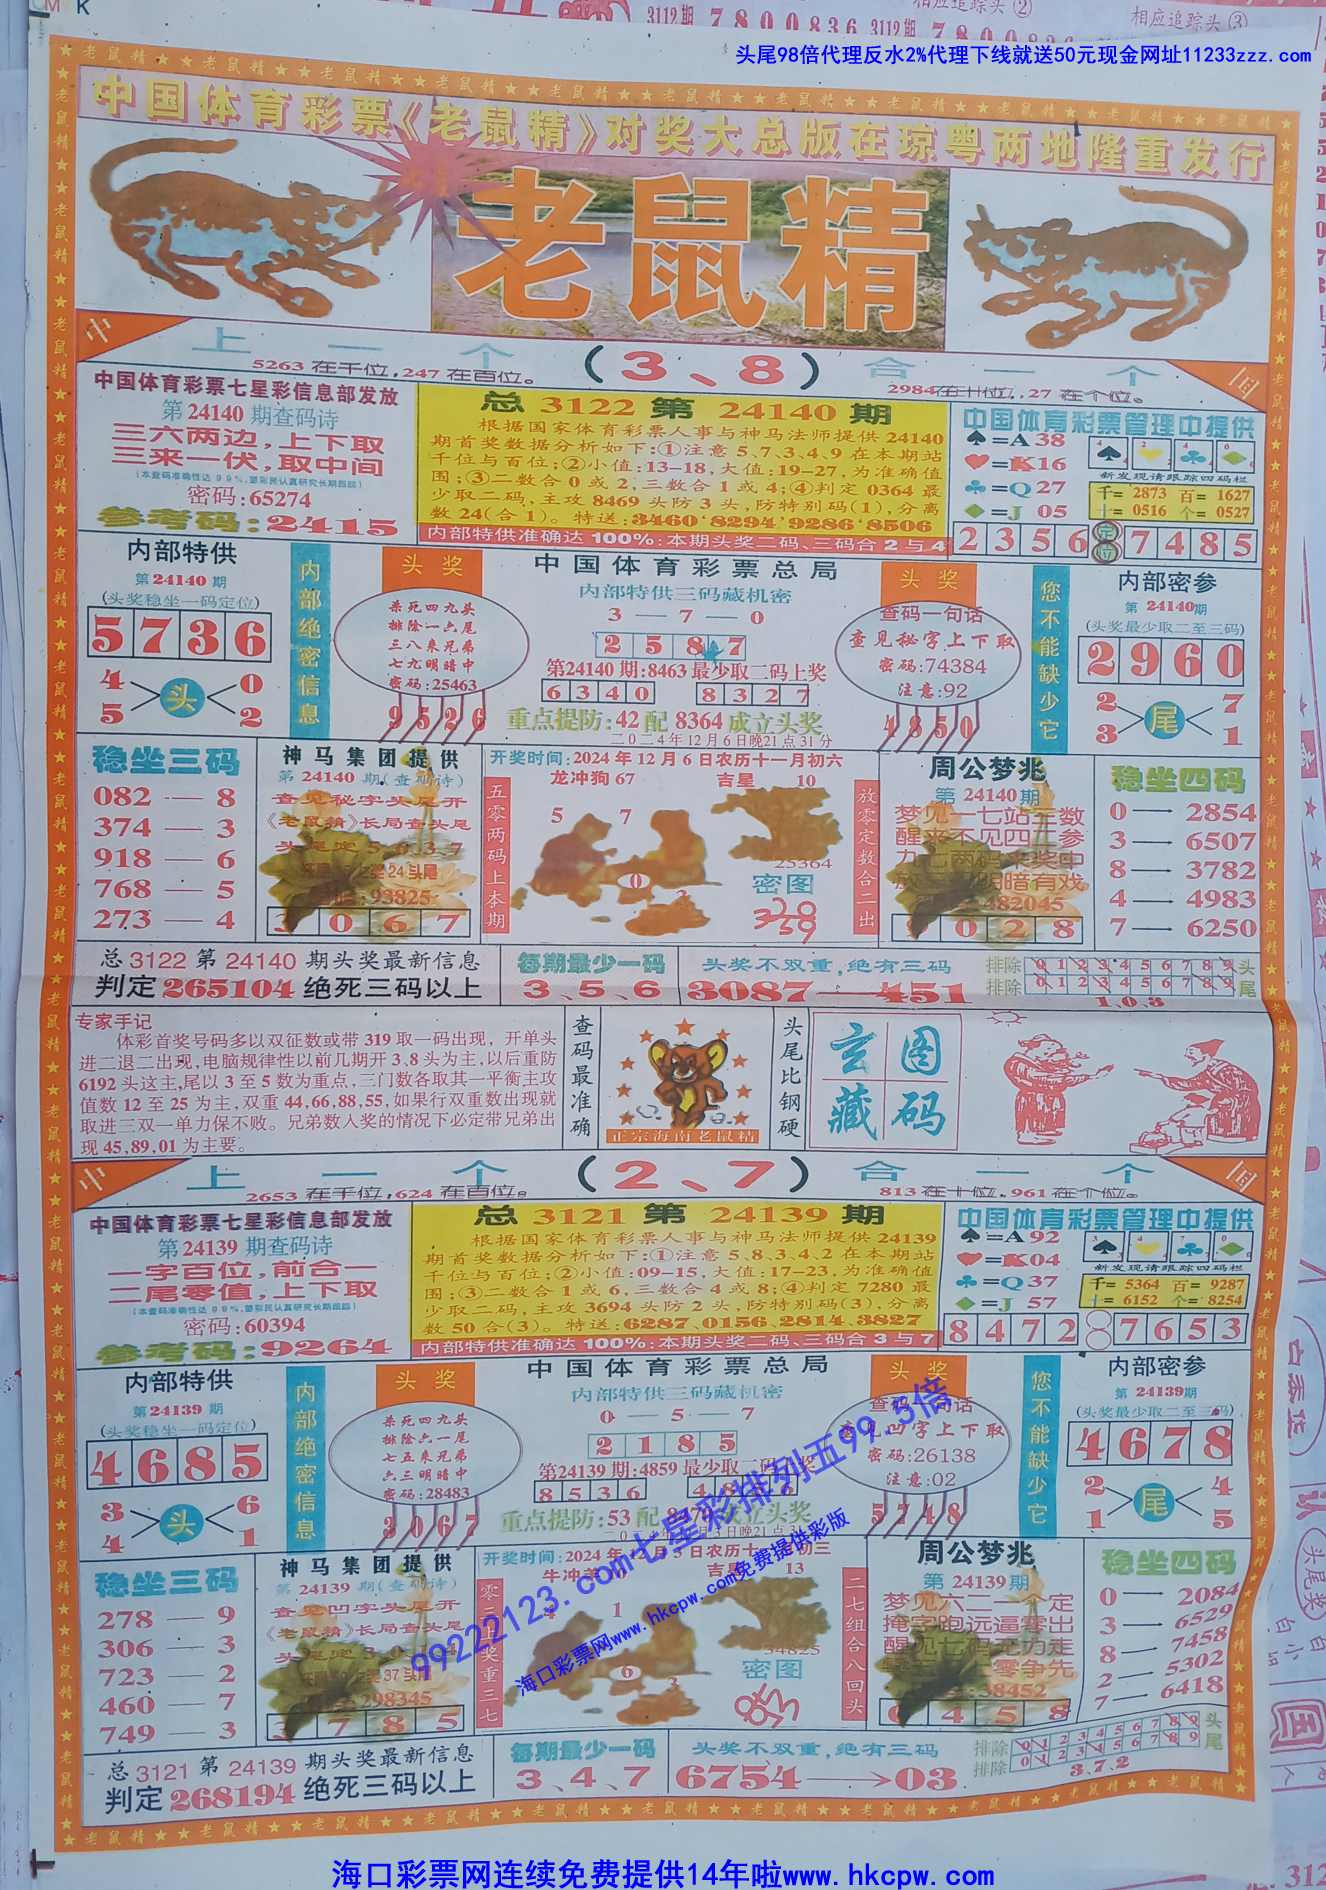 头尾98倍代理反水2%代理下线就送50元现金网址11233zzz.com
中国体育彩票《老鼠精》对奖大总版在琼粤两地隆重发行
老鼠精
中 上一个 (3、8) 合一个 国
5263 在千位,247 在百位。
2984在十位,.27 在个位。
中国体育彩票七星彩信息部发放
第 24140 期查码诗
三六两边,上下取
三来一伏,取中间
密码:65274
参考码:2415
总 3122 第 24140 期
根据国家体育彩票人事与神马法师提供 24140
期首奖数据分析如下:①注意 5、7、3、4、9 在本期站
千位与百位;②小值:13-18,大值:19-27 为准确值
围;③二数合 0 或 2,三数合 1 或 4;④判定 0364 最
少取二码,主攻 8469 头防 3 头,防特别码(1),分离
数 24(合 1)。特送:3460·8294·9286·8506
内部特供准确达 100%:本期头奖二码、三码合 2 与 4
中国体育彩票管理中提供
♠=A 38
♥=K16
♣=Q 27
♦=J 05
新发现请跟踪四码栏
千= 2873 百= 1627
十= 0516 个= 0527
2 3 5 6 定位 7 4 8 5
内部特供
第 24140 期
(头奖稳坐一码定位)
5 7 3 6
4 5 头 0 2
内部绝密信息
头奖
杀死四九头
排除一六尾
三八来兄弟
七九明暗中
密码:25463
9526
中国体育彩票总局
内部特供三码藏机密
3 — 7 — 0
2 5 8 7
第24140 期:8463 最少取二码上奖
6 3 4 0 8 3 2 7
重点提防:42 配 8364 成立头奖
二0二4年12月6日晚21点31分
头奖
查码一句话
查见秘字上下取
密码:74384
注意:92
4850
您不能缺少它
内部密参
第 24140期
(头奖最少取二至三码)
2 9 6 0
2 3 尾 7 1
稳坐三码
082 — 8
374 — 3
918 — 6
768 — 5
273 — 4
神马集团提供
第 24140 期(查码诗)
查见秘字头尾开
《老鼠精》长局查头尾
头尾定 5、6、3、7
24 头尾
93825
3 0 6 7
开奖时间:2024 年 12 月 6 日农历十一月初六
龙冲狗 67 吉星 10
五零两码上本期
5 7
0
25364
密图
放零定数合二出
周公梦兆
第 24140 期
梦见一七站三数
醒来不见四三参
482045
0 2 8
稳坐四码
0 → 2854
3 → 6507
8 → 3782
4 → 4983
7 → 6250
总 3122 第 24140 期头奖最新信息
判定 265104 绝死三码以上
每期最少一码
3、5、6
头奖不双重,绝有三码
3087—451
排除 0 1 2 3 4 5 6 7 8 9 头
排除 0 1 2 3 4 5 6 7 8 9 尾
1、0、3
专家手记
体彩首奖号码多以双征数或带 319 取一码出现, 开单头
进二退二出现,电脑规律性以前几期开 3、8 头为主,以后重防
6192 头这主,尾以 3 至 5 数为重点,三门数各取其一平衡主攻
值数 12 至 25 为主,双重 44,66,88,55,如果行双重数出现就
取进三双一单力保不败。兄弟数入奖的情况下必定带兄弟出
现 45,89,01 为主要。
查码最准确
正宗海南老鼠精
头尾比钢硬
玄图藏码
中 上一个 (2、7) 合一个 国
2653 在千位,624 在百位。
813 在十位,961 在个位。
中国体育彩票七星彩信息部发放
第 24139 期查码诗
一字百位,前合一
二尾零值,上下取
密码:60394
参考码:9264
总 3121 第 24139 期
根据国家体育彩票人事与神马法师提供 24139
期首奖数据分析如下:①注意 5、8、3、4、2 在本期站
千位与百位;②小值:09-15,大值:17-23,为准确值
围;③二数合 1 或 6,三数合 4 或 8;④判定 7280 最
少取二码,主攻 3694 头防 2 头,防特别码(3),分离
数 50 合(3)。特送:6287、0156、2814、3827
内部特供准确达 100%:本期头奖二码、三码合 3 与 7
中国体育彩票管理中提供
♠=A 92
♥=K04
♣=Q 37
♦=J 57
新发现请跟踪四码栏
千= 5364 百= 9287
十= 6152 个= 8254
8 4 7 2 7 6 5 3
内部特供
第 24139 期
(头奖稳坐一码定位)
4 6 8 5
3 4 头 6 1
内部绝密信息
头奖
杀死四九头
排除六一尾
七五来兄弟
六三明暗中
密码:28483
3067
中国体育彩票总局
内部特供三码藏机密
0 — 5 — 7
2 1 8 5
第24139 期:4859 最少取二码
8 5 3 6
重点提防:53 配
头奖
查码一句话
查见凹字上下取
密码:26138
注意:02
5248
您不能缺少它
内部密参
第 24139期
(头奖最少取二至三码)
4 6 7 8
2 1 尾 4 5
稳坐三码
278 — 9
306 — 3
723 — 2
460 — 7
749 — 3
神马集团提供
第 24139 期(查码诗)
查见凹字头尾开
《老鼠精》长局查头尾
37 头尾
298345
3 7 8 5
牛冲羊
吉星 13
4 1
6
34825
密图
二七组合八回头
周公梦兆
第 24139 期
梦见六二一个定
掩字跑远逼零出
零争先
38452
0 4 5 8
稳坐四码
0 → 2084
3 → 6529
8 → 7458
2 → 5302
7 → 6418
总 3121 第 24139 期头奖最新信息
判定 268194 绝死三码以上
每期最少一码
3、4、7
头奖不双重,绝有三码
6754→03
排除 0 1 2 3 4 5 6 7 8 9 头
排除 0 1 2 3 4 5 6 7 8 9 尾
3、7、2
99222123.com七星彩排列五99.5倍
海口彩票网www.hkcpw.com免费提供彩版
海口彩票网连续免费提供14年啦www.hkcpw.com